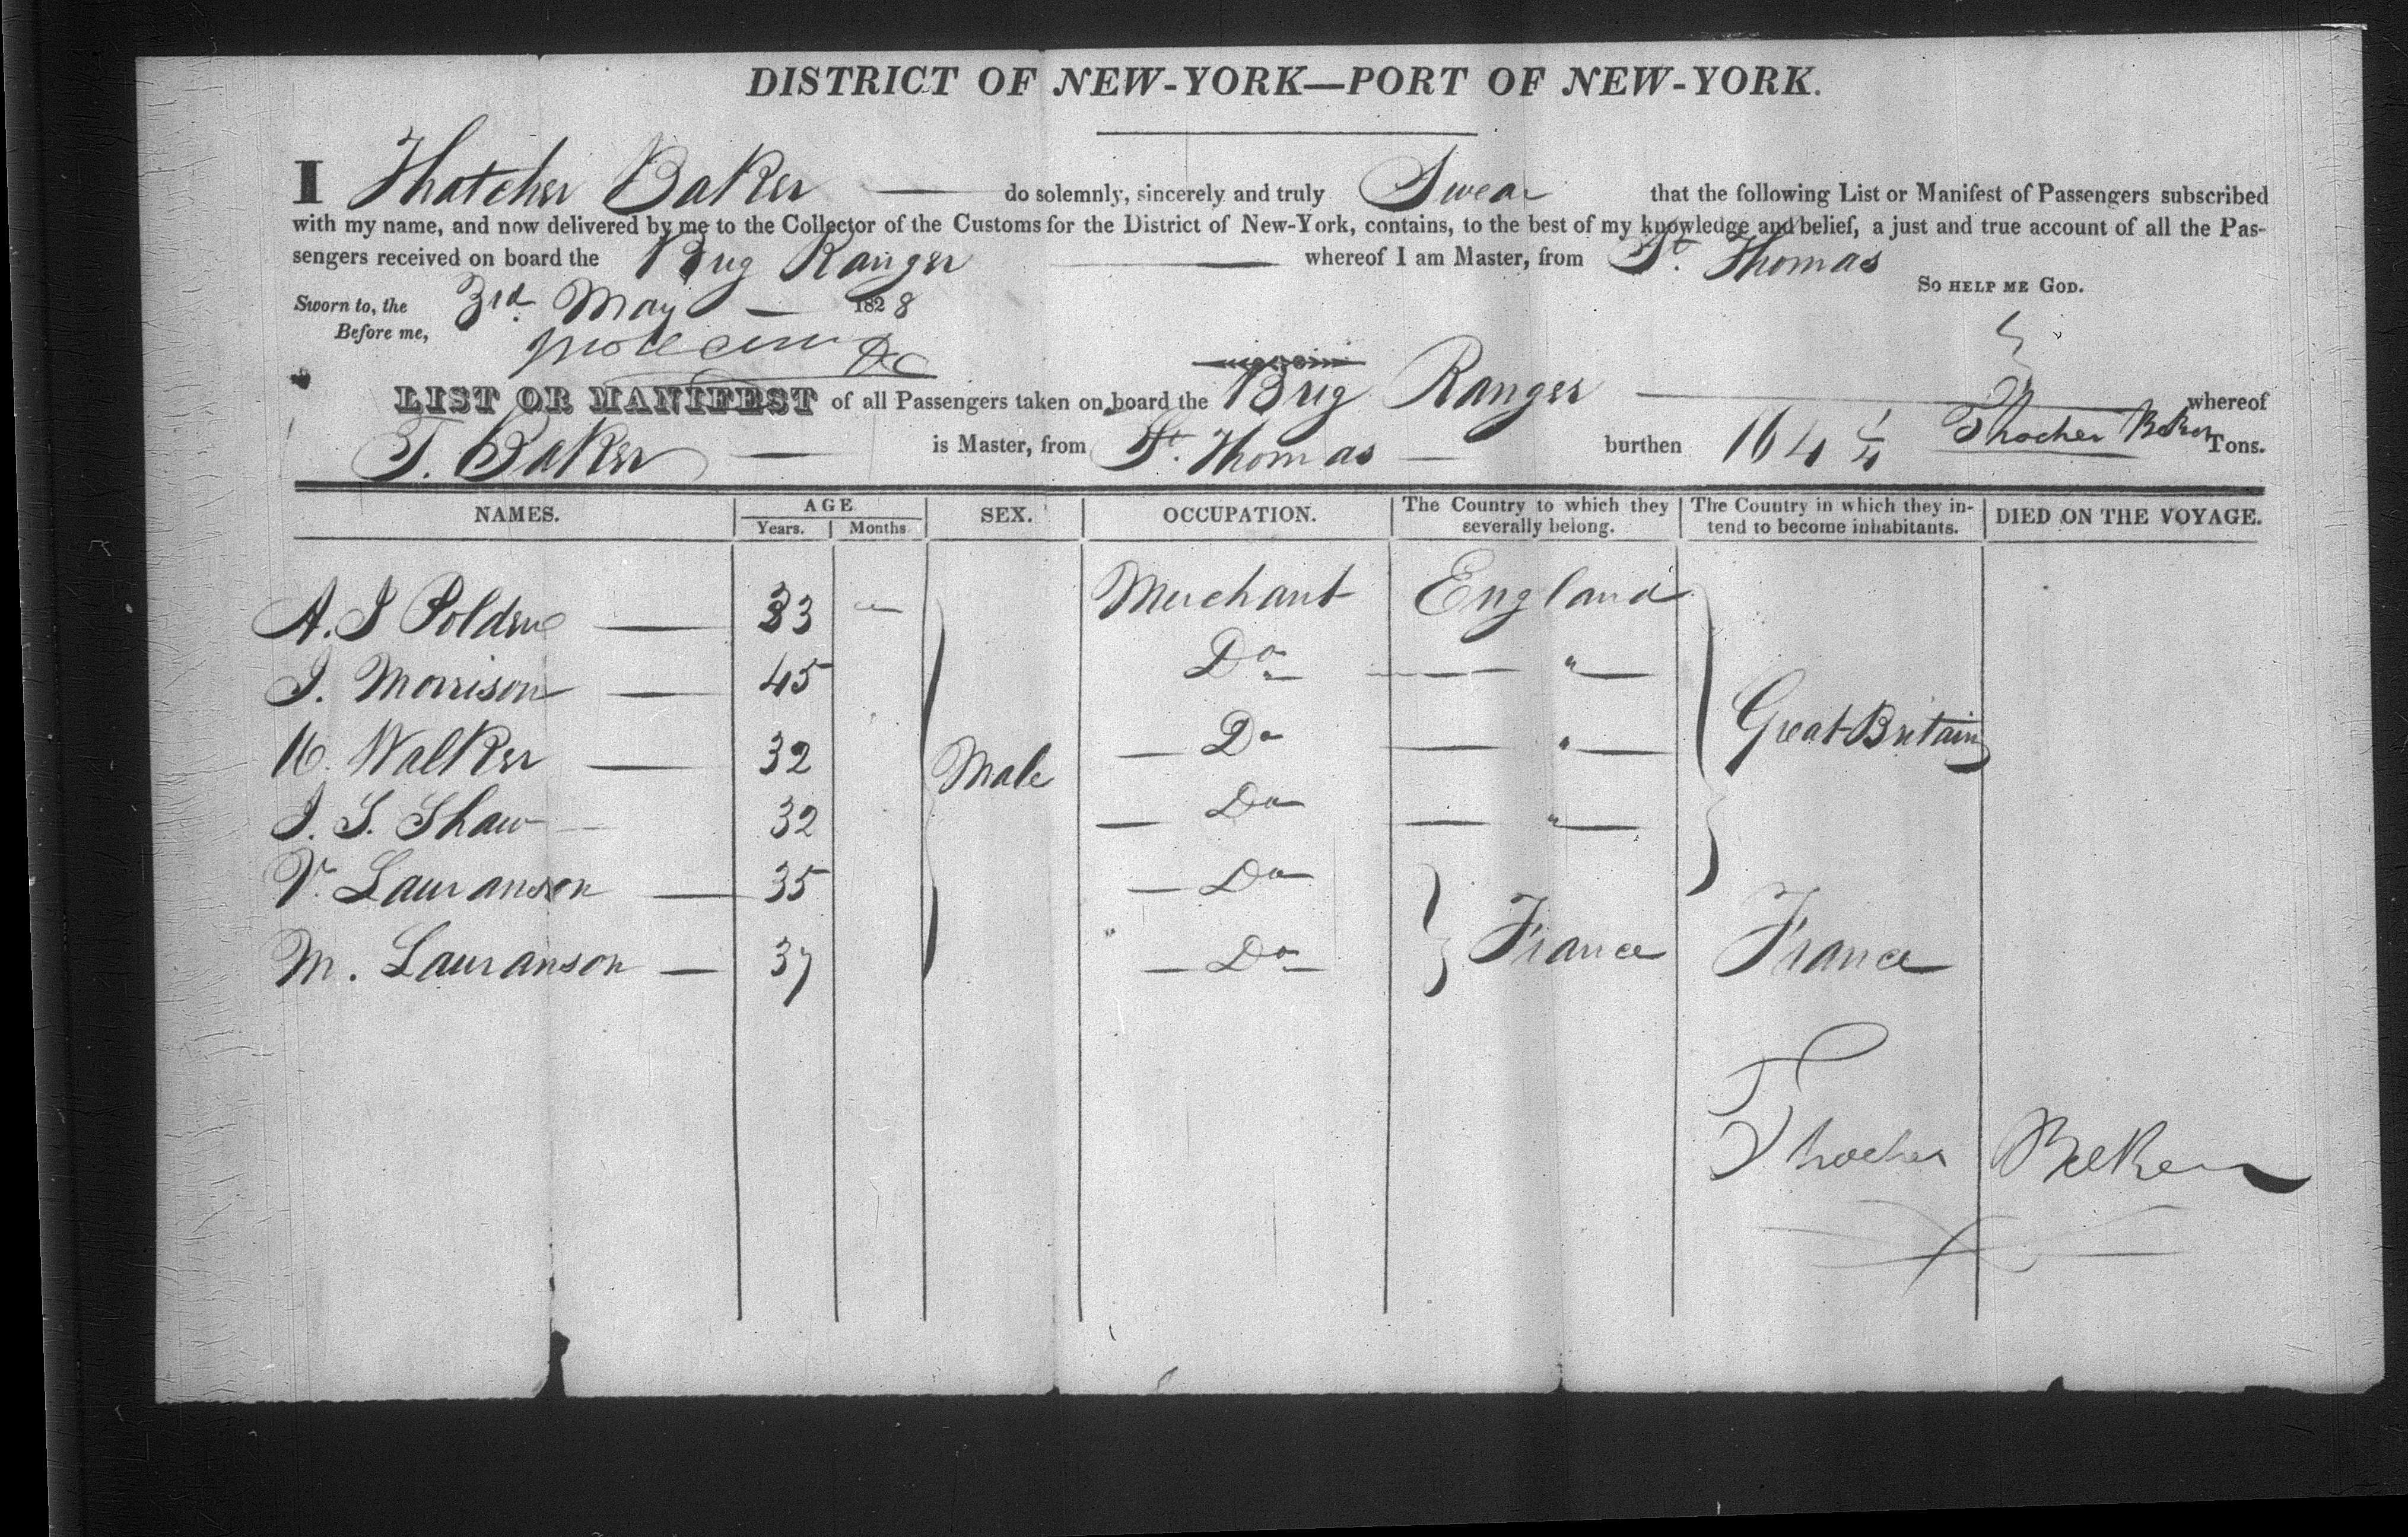 DISTRICT OF NEW-YORK—PORT OF NEW-YORK.
I Thatcher Baker do solemnly, sincerely and truly Swear that the following List or Manifest of Passengers subscribed
with my name, and now delivered by me to the Collector of the Customs for the District of New-York, contains, to the best of my knowledge and belief, a just and true account of all the Pas-
sengers received on board the Brig Ranger whereof I am Master, from St. Thomas
So HELP ME GOD.
Sworn to, the 3rd. May 1828
Before me,
LIST OR MANIFEST of all Passengers taken on board the Brig Ranger whereof
T. Baker is Master, from St. Thomas burthen 164 1/4 Thacher Baker Tons.
NAMES. AGE Years. Months. SEX. OCCUPATION. The Country to which they severally belong. The Country in which they in-tend to become inhabitants. DIED ON THE VOYAGE.
A. J 33 Merchant England
J. Morrison 45 Do "
Walker 32 Do " Great Britain
Male
J. S. Shaw 32 Do "
V. Lauranson 35 Do
M. Lauranson 37 " Do France France
Thacher Baker